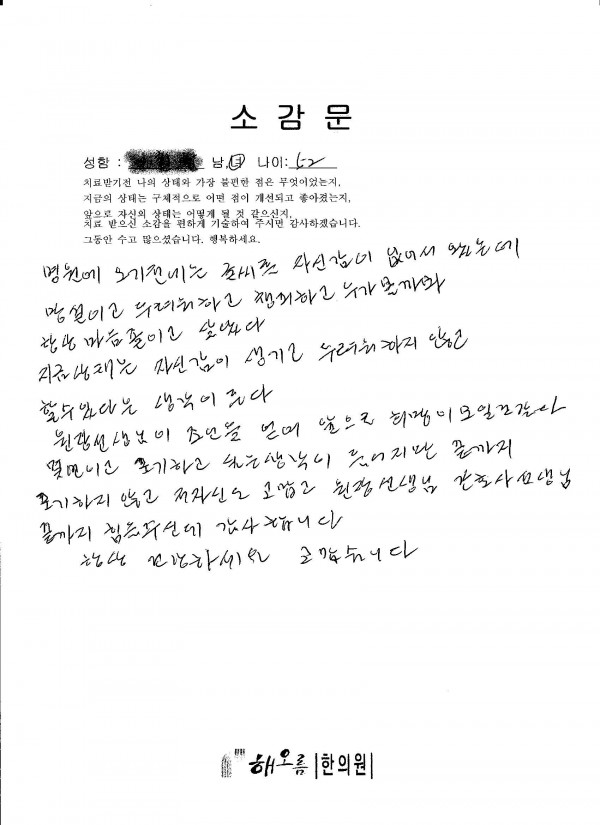 소 감 문
성함 : 남,녀 나이: 52
치료받기전 나의 상태와 가장 불편한 점은 무엇이었는지,
지금의 상태는 구체적으로 어떤 점이 개선되고 좋아졌는지,
앞으로 자신의 상태는 어떻게 될 것 같으신지,
치료 받으신 소감을 편하게 기술하여 주시면 감사하겠습니다.
그동안 수고 많으셨습니다. 행복하세요.
병원에 오기전에는 글씨쓴 자신감이 없어서 왔는데
망설이고 두려워하고 창피하고 누가볼까봐
항상 마음졸이고 살았다
지금상태는 자신감이 생기고 두려워하지 않고
할수있다는 생각이 든다
원장선생님이 조언을 얻어 앞으로 희망이 보일것같다
몇번이고 포기하고 싶은생각이 들어지만 끝까지
포기하지 않고 저자신도 고맙고 원장선생님 간호사선생님
끝까지 힘을주신데 감사합니다
항상 건강하세요 고맙습니다
해오름 한의원